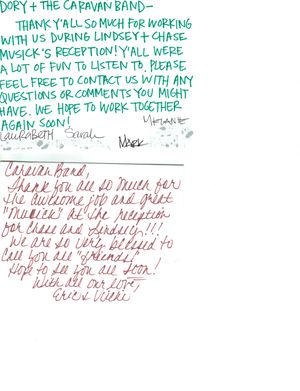 DORY + THE CARAVAN BAND-
THANK Y'ALL SO MUCH FOR WORKING
WITH US DURING LINDSEY + CHASE
MUSICK'S RECEPTION! Y'ALL WERE
A LOT OF FUN TO LISTEN TO. PLEASE
FEEL FREE TO CONTACT US WITH ANY
QUESTIONS OR COMMENTS YOU MIGHT
HAVE. WE HOPE TO WORK TOGETHER
AGAIN SOON!
LAURABETH Sarah MARK MELANIE
Caravan Band,
Thank you all so much for
the awesome job and great
"Musick" at the reception
for Chase and Lindsey!!!
We are so very blessed to
call you all "friends!"
Hope to see you all soon!
With all our love,
Eric & Vicki